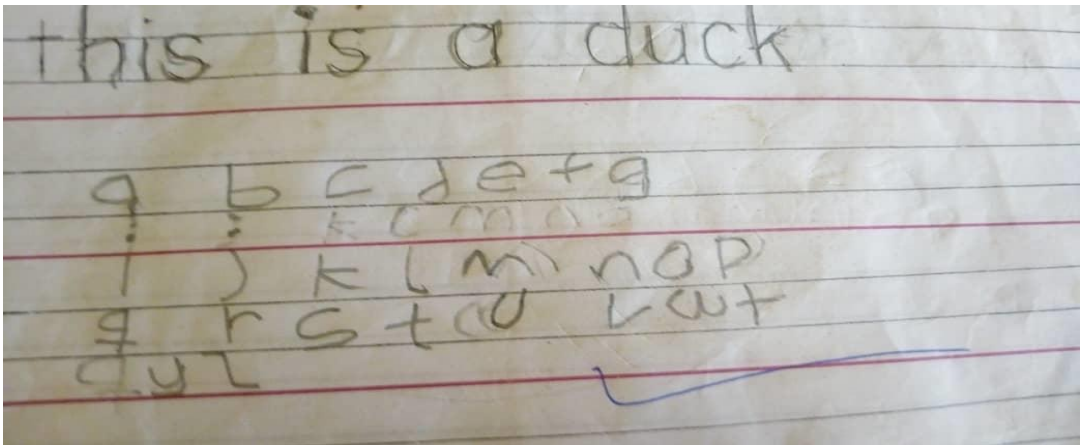 this is a duck
a b c d e f g
k l m n o
i j k l m n o p
q r s t u v w t